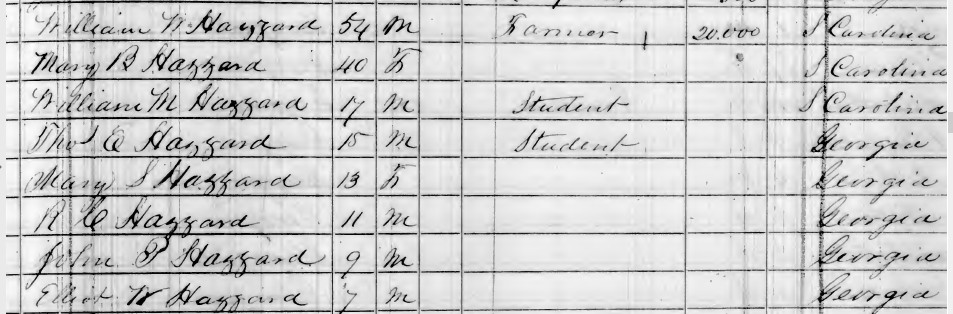 William W Hazzard 54 M Farmer 20.000 S Carolina
Mary B Hazzard 40 F S Carolina
William M Hazzard 17 M Student S Carolina
Thos E Hazzard 15 M Student Georgia
Mary S Hazzard 13 F Georgia
R C Hazzard 11 M Georgia
John P Hazzard 9 M Georgia
Elliot W Hazzard 7 M Georgia